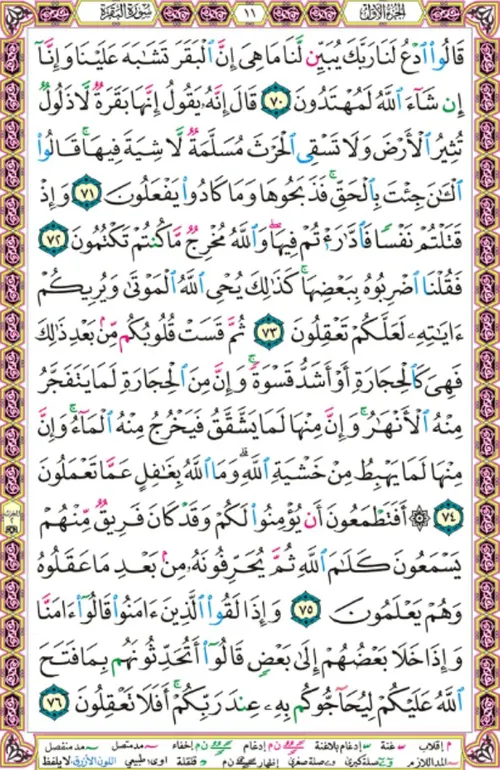 الجزء الأول
١١
سُورَةُ البَقَرَة
قَالُوا۟ ٱدْعُ لَنَا رَبَّكَ يُبَيِّن لَّنَا مَا هِىَ إِنَّ ٱلْبَقَرَ تَشَـٰبَهَ عَلَيْنَا وَإِنَّآ
إِن شَآءَ ٱللَّهُ لَمُهْتَدُونَ ٧٠ قَالَ إِنَّهُۥ يَقُولُ إِنَّهَا بَقَرَةٌ لَّا ذَلُولٌ
تُثِيرُ ٱلْأَرْضَ وَلَا تَسْقِى ٱلْحَرْثَ مُسَلَّمَةٌ لَّا شِيَةَ فِيهَا ۚ قَالُوا۟
ٱلْـَٔـٰنَ جِئْتَ بِٱلْحَقِّ ۚ فَذَبَحُوهَا وَمَا كَادُوا۟ يَفْعَلُونَ ٧١ وَإِذْ
قَتَلْتُمْ نَفْسًا فَٱدَّٰرَْٰٔتُمْ فِيهَا ۖ وَٱللَّهُ مُخْرِجٌ مَّا كُنتُمْ تَكْتُمُونَ ٧٢
فَقُلْنَا ٱضْرِبُوهُ بِبَعْضِهَا ۚ كَذَٰلِكَ يُحْىِ ٱللَّهُ ٱلْمَوْتَىٰ وَيُرِيكُمْ
ءَايَـٰتِهِۦ لَعَلَّكُمْ تَعْقِلُونَ ٧٣ ثُمَّ قَسَتْ قُلُوبُكُم مِّنۢ بَعْدِ ذَٰلِكَ
فَهِىَ كَٱلْحِجَارَةِ أَوْ أَشَدُّ قَسْوَةً ۚ وَإِنَّ مِنَ ٱلْحِجَارَةِ لَمَا يَتَفَجَّرُ
مِنْهُ ٱلْأَنْهَـٰرُ ۚ وَإِنَّ مِنْهَا لَمَا يَشَّقَّقُ فَيَخْرُجُ مِنْهُ ٱلْمَآءُ ۚ وَإِنَّ
مِنْهَا لَمَا يَهْبِطُ مِنْ خَشْيَةِ ٱللَّهِ ۗ وَمَا ٱللَّهُ بِغَـٰفِلٍ عَمَّا تَعْمَلُونَ
٧٤ ۞ أَفَتَطْمَعُونَ أَن يُؤْمِنُوا۟ لَكُمْ وَقَدْ كَانَ فَرِيقٌ مِّنْهُمْ
يَسْمَعُونَ كَلَـٰمَ ٱللَّهِ ثُمَّ يُحَرِّفُونَهُۥ مِنۢ بَعْدِ مَا عَقَلُوهُ
وَهُمْ يَعْلَمُونَ ٧٥ وَإِذَا لَقُوا۟ ٱلَّذِينَ ءَامَنُوا۟ قَالُوٓا۟ ءَامَنَّا
وَإِذَا خَلَا بَعْضُهُمْ إِلَىٰ بَعْضٍ قَالُوٓا۟ أَتُحَدِّثُونَهُم بِمَا فَتَحَ
ٱللَّهُ عَلَيْكُمْ لِيُحَآجُّوكُم بِهِۦ عِندَ رَبِّكُمْ ۚ أَفَلَا تَعْقِلُونَ ٧٦
م إقلاب غنة إدغام بلاغنة ن م إدغام ن م إخفاء مد متصل مد منفصل
المد اللازم صلة كبرى وصلة صغرى قلقلة اوى طبيعي اللون الأزرق لا يلفظ